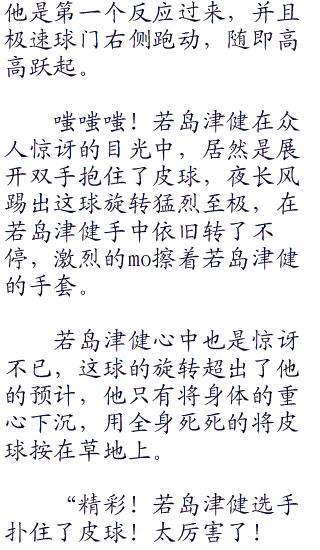 他是第一个反应过来，并且
极速球门右侧跑动，随即高
高跃起。
嗤嗤嗤！若岛津健在众
人惊讶的目光中，居然是展
开双手抱住了皮球，夜长风
踢出这球旋转猛烈至极，在
若岛津健手中依旧转了不
停，激烈的mo擦着若岛津健
的手套。
若岛津健心中也是惊讶
不已，这球的旋转超出了他
的预计，他只有将身体的重
心下沉，用全身死死的将皮
球按在草地上。
“精彩！若岛津健选手
扑住了皮球！太厉害了！